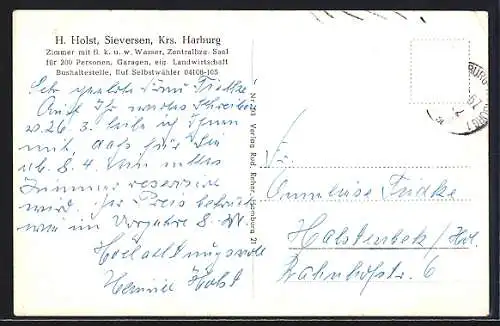 H. Holst, Sieversen, Krs. Harburg
Zimmer mit fl. k. u. w. Wasser, Zentralhzg. Saal
für 200 Personen, Garagen, eig. Landwirtschaft
Bushaltestelle, Ruf Selbstwähler 04108-165
Sehr geehrte Frau Fricke!
Auf Ihr wertes Schreiben
v. 26. 3. teile ich Ihnen
mit, daß für Sie
ab 8. 4. ein
Zimmer reserviert
wird. Der Preis beträgt
wie im Vorjahre 8.- M.
Hochachtungsvoll
Holst
Verlag Rud. Reher, Hamburg 21
Fr.
Anneliese Fricke
Halstenbek/Hol.
Bahnhofstr. 6